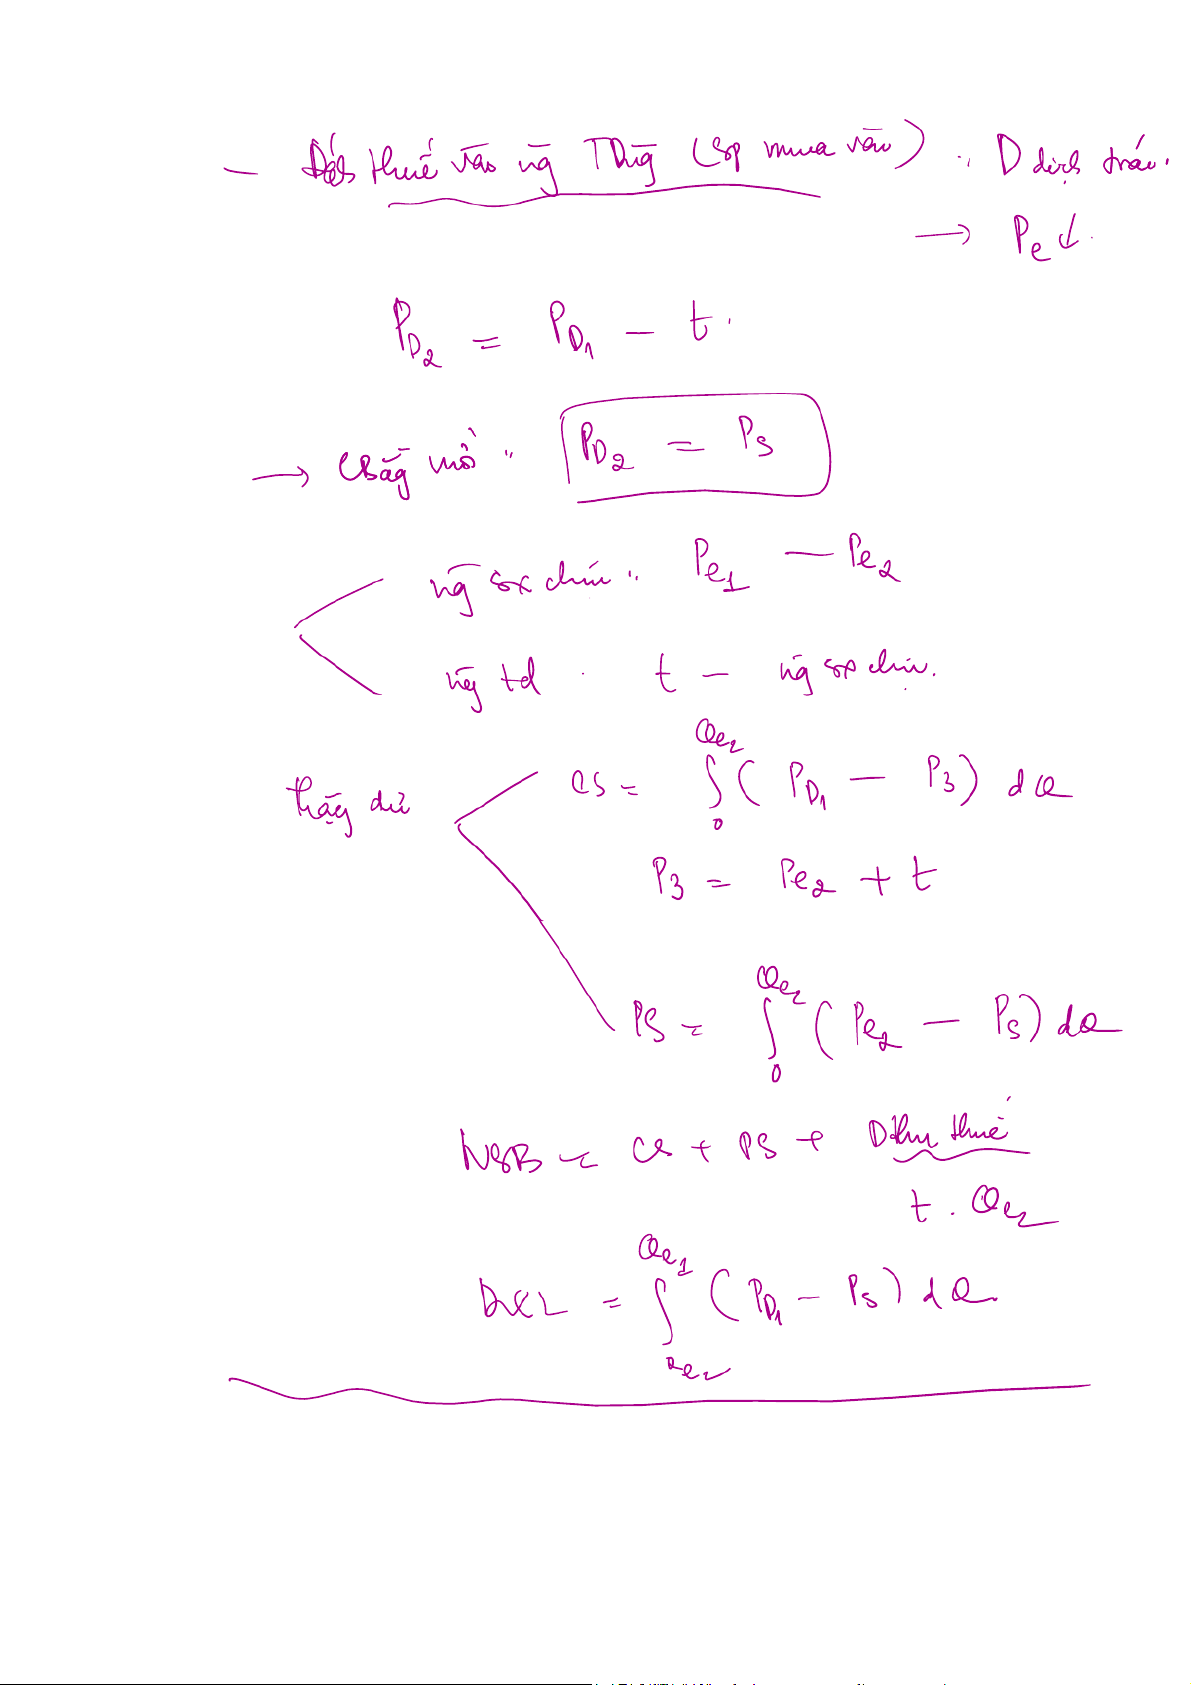 - Đánh thuế vào ng Tdùng (sp mua vào) : D dịch trái.
→ Pe ↓.
P_D2 = P_D1 - t.
→ CBằng mới : P_D2 = P_S
ng sx chịu : Pe1 — Pe2
ng td : t - ng sx chịu.
thặng dư
CS = ∫_0^Qe2 (P_D1 - P3) dQ
P3 = Pe2 + t
PS = ∫_0^Qe2 (Pe2 - P_S) dQ
NSB = CS + PS + Dthu thuế
t . Qe2
DWL = ∫_Qe2^Qe1 (P_D1 - P_S) dQ